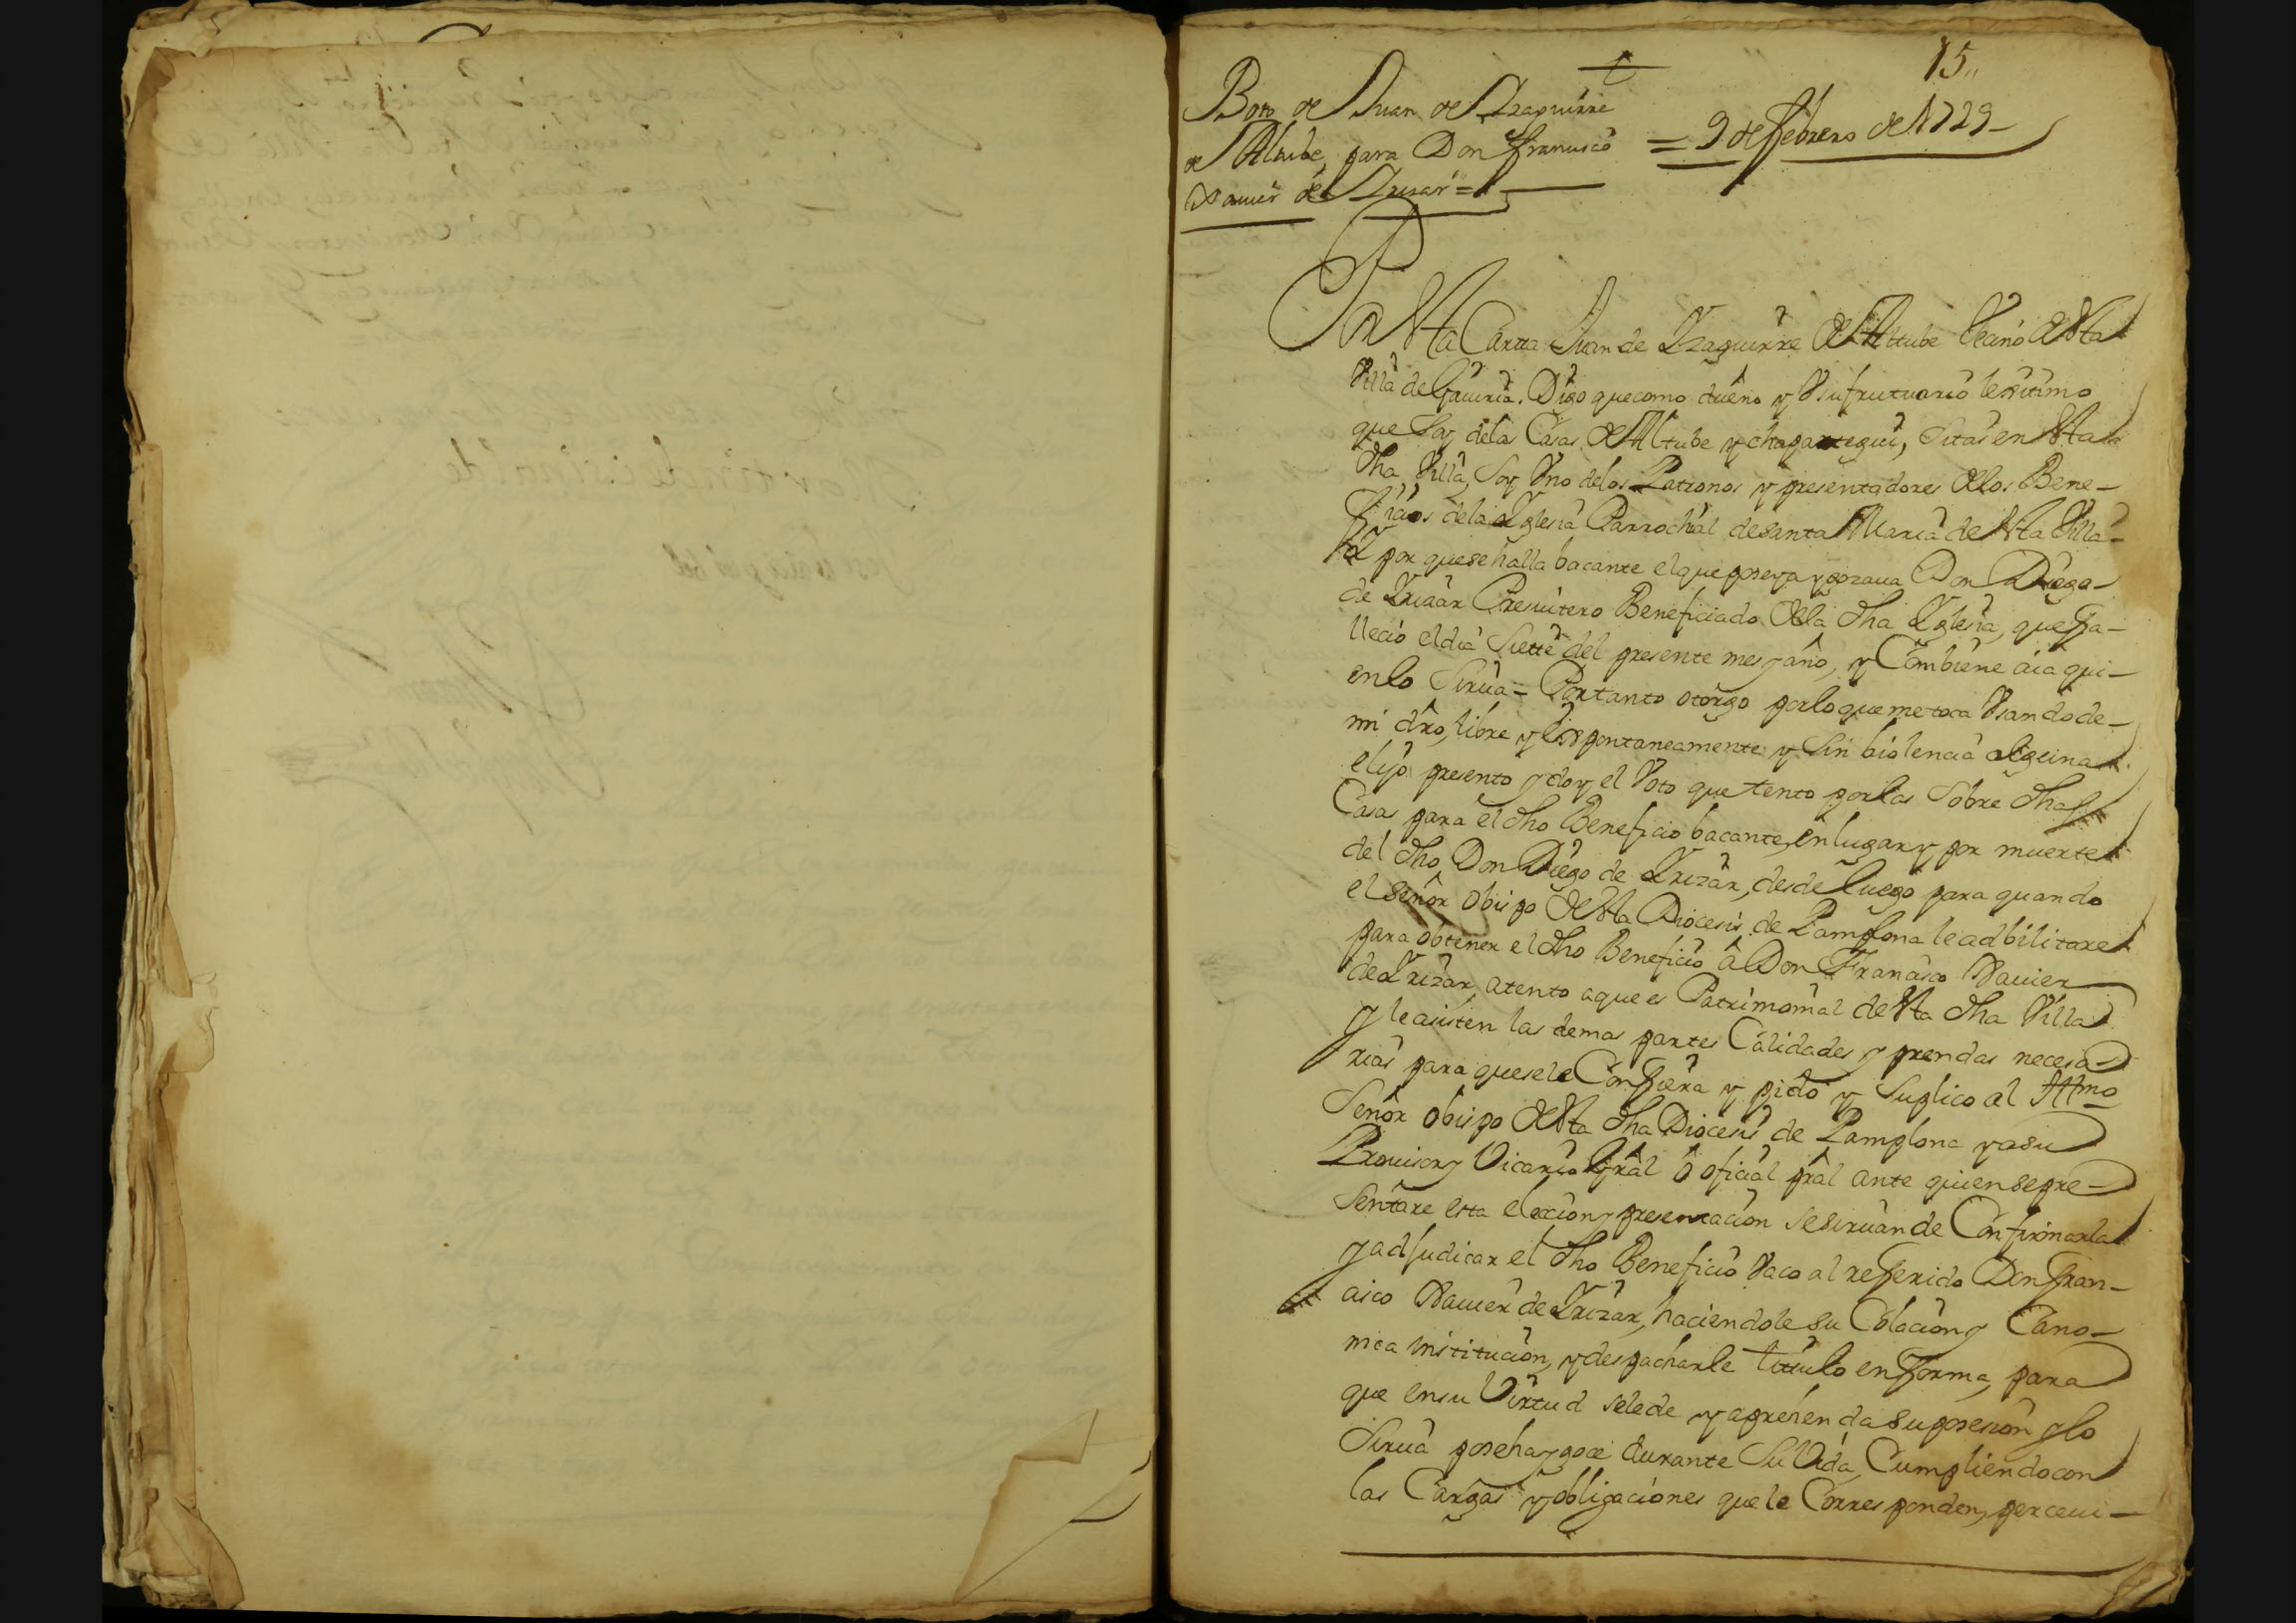 15
Boto de Juan de Yzaguirre
de Altube, para Don Francisco
Xauier de Yrizar =
= 9 de Febrero de 1729 -
Por Esta Carta Juan de Yzaguirre de Altube Vecino de Esta
Villa de Gauiria. Digo que como dueño y Vsufrutuario lexitimo
que Soy de las Casas de Altube y chapartegui, Sitas en Esta
dha Villa, Soy Vno de los Patronos y presentadores de los Bene-
ficios de la Yglesia Parrochial de Santa Maria de Esta Villa-
Y por que se halla bacante el que poseya y gozaua Don Diego
de Yrizar Presuitero Beneficiado de la dha Yglesia, que fa-
llecio el dia Siette del presente mes y año, y Combiene aia qui-
en lo Sirua = Por tanto otorgo por lo que me toca Vsando de-
mi dro, libre y Espontaneamente y Sin biolencia alguna
elijo presento y doy el Voto que tento por las Sobre dhas
Casas para el dho Beneficio bacante, en lugar y por muerte
del dho Don Diego de Yrizar, desde luego para quando
el Señor Obispo de Esta Diocesis de Pamplona le adbilitare
para obtener el dho Beneficio â Don Francisco Xauier
de Yrizar, atento a que es Patrimonial de Esta dha Villa
y le asisten las demas partes Calidades y prendas necesa-
rias para que se le Confiera y pido y Suplico al Illmo
Señor Obispo de Esta dha Diocesis de Pamplona y a su
Prouisor y Vicario Gral ô oficial pral ante quien se pre-
sentare esta eleccion y presentacion se siruan de Confirmarla
y adjudicar el dho Beneficio Vaco al referido Don Fran-
cisco Xauier de Yrizar, haciendole su Colacion y Cano-
nica institucion, y despacharle tittulo en forma, para
que en su Virtud se le de y aprehenda su posesion y lo
Sirua poseha y goce durante Su Vida, Cumpliendo con
las Cargas y obligaciones que le Corresponden, perceui-